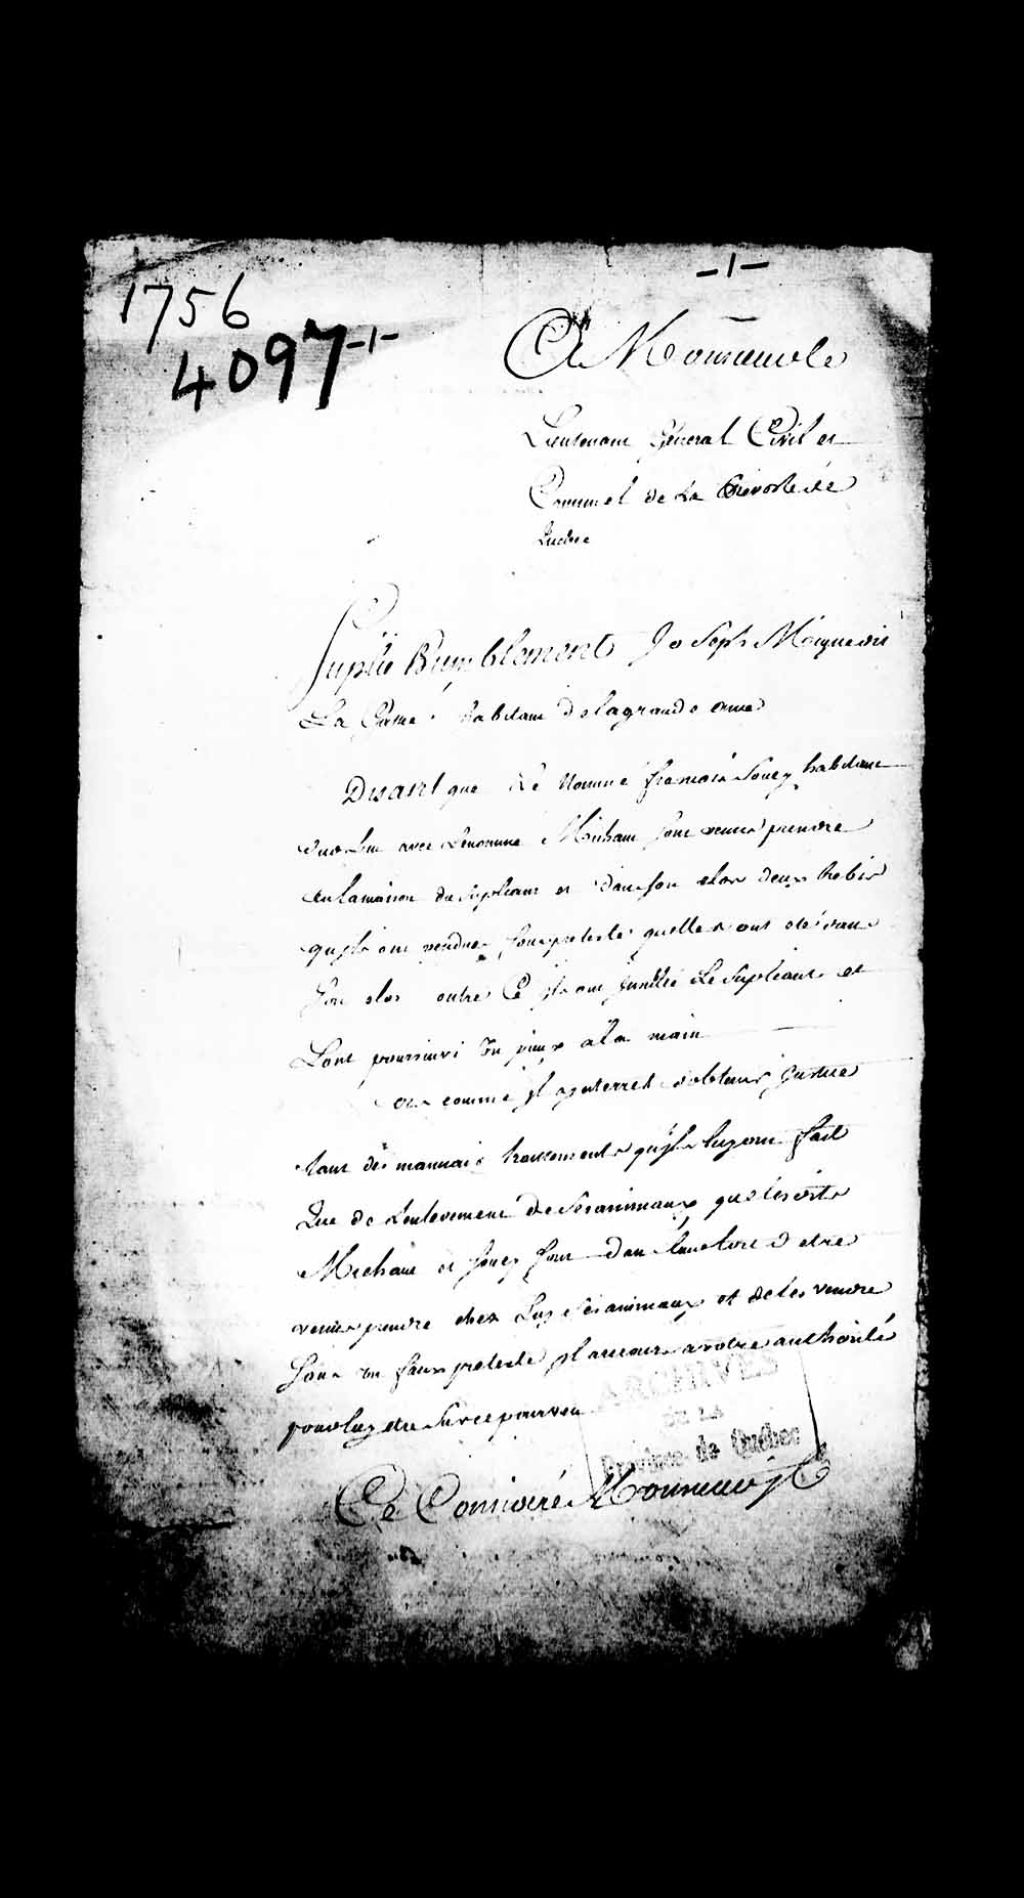 -1-
1756
4097-1-
A Monsieur le
Lieutenant General Civil et
Criminel de La Prevosté de
Quebec
Suplie humblement Joseph Miguedit
La habitant de la grande
Disant que Le Nommé francois Soucy habitant
dudit Lieu avec Lenommé Michaux sont venus prendre
en lamaison du supliant et dans son clos deux
qu'ils ont vendues sous pretexte quelles ont été dans
son clos outre Ce ils ont Le Supliant et
Lont poursuivi un pieux a la main
or comme il a interrest d'obtenir justice
tant des mauvais traittements qu'ils luy ont fait
Que de Lenlevement de Ses animaux que lesdits
Michaux et Soucy sont dans d etre
venus prendre chez Luy Ses animaux et de les vendre
Sous un faux pretexte il a recours a votre authorité
pour luy etre Sur ce pourveu
ARCHIVES
DE LA
Province de Québec
Ce Consideré Monsieur Il